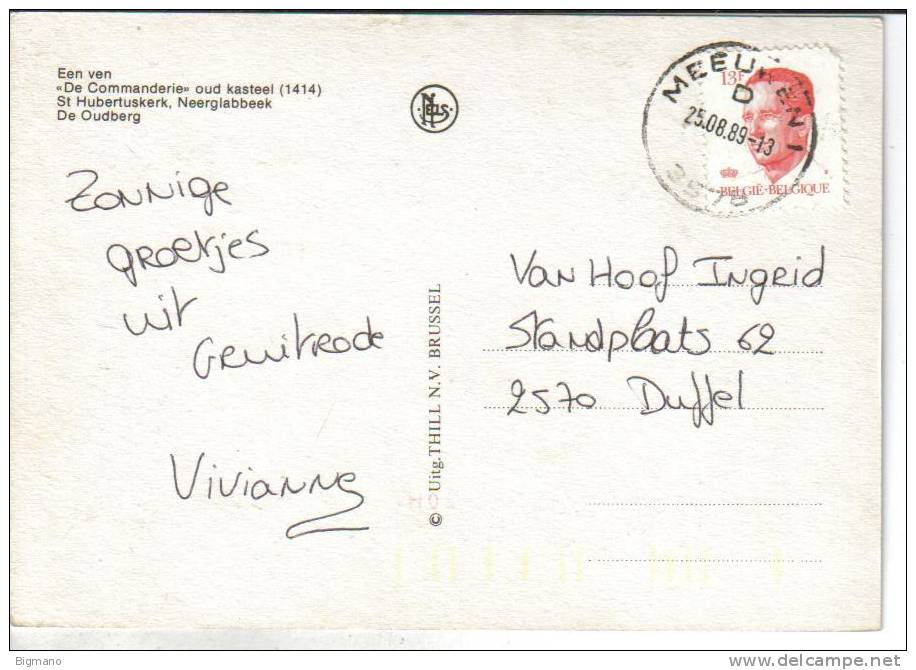 Een ven
«De Commanderie» oud kasteel (1414)
St Hubertuskerk, Neerglabbeek
De Oudberg
NELS
MEEUWEN 1
D
25.08.89-13
3578
13F
BELGIË-BELGIQUE
Zonnige
groetjes
uit
Gruitrode
Vivianne
© Uitg. THILL N.V. BRUSSEL
Van Hoof Ingrid
Standplaats 62
2570 Duffel
Bigmano
delcampe.net